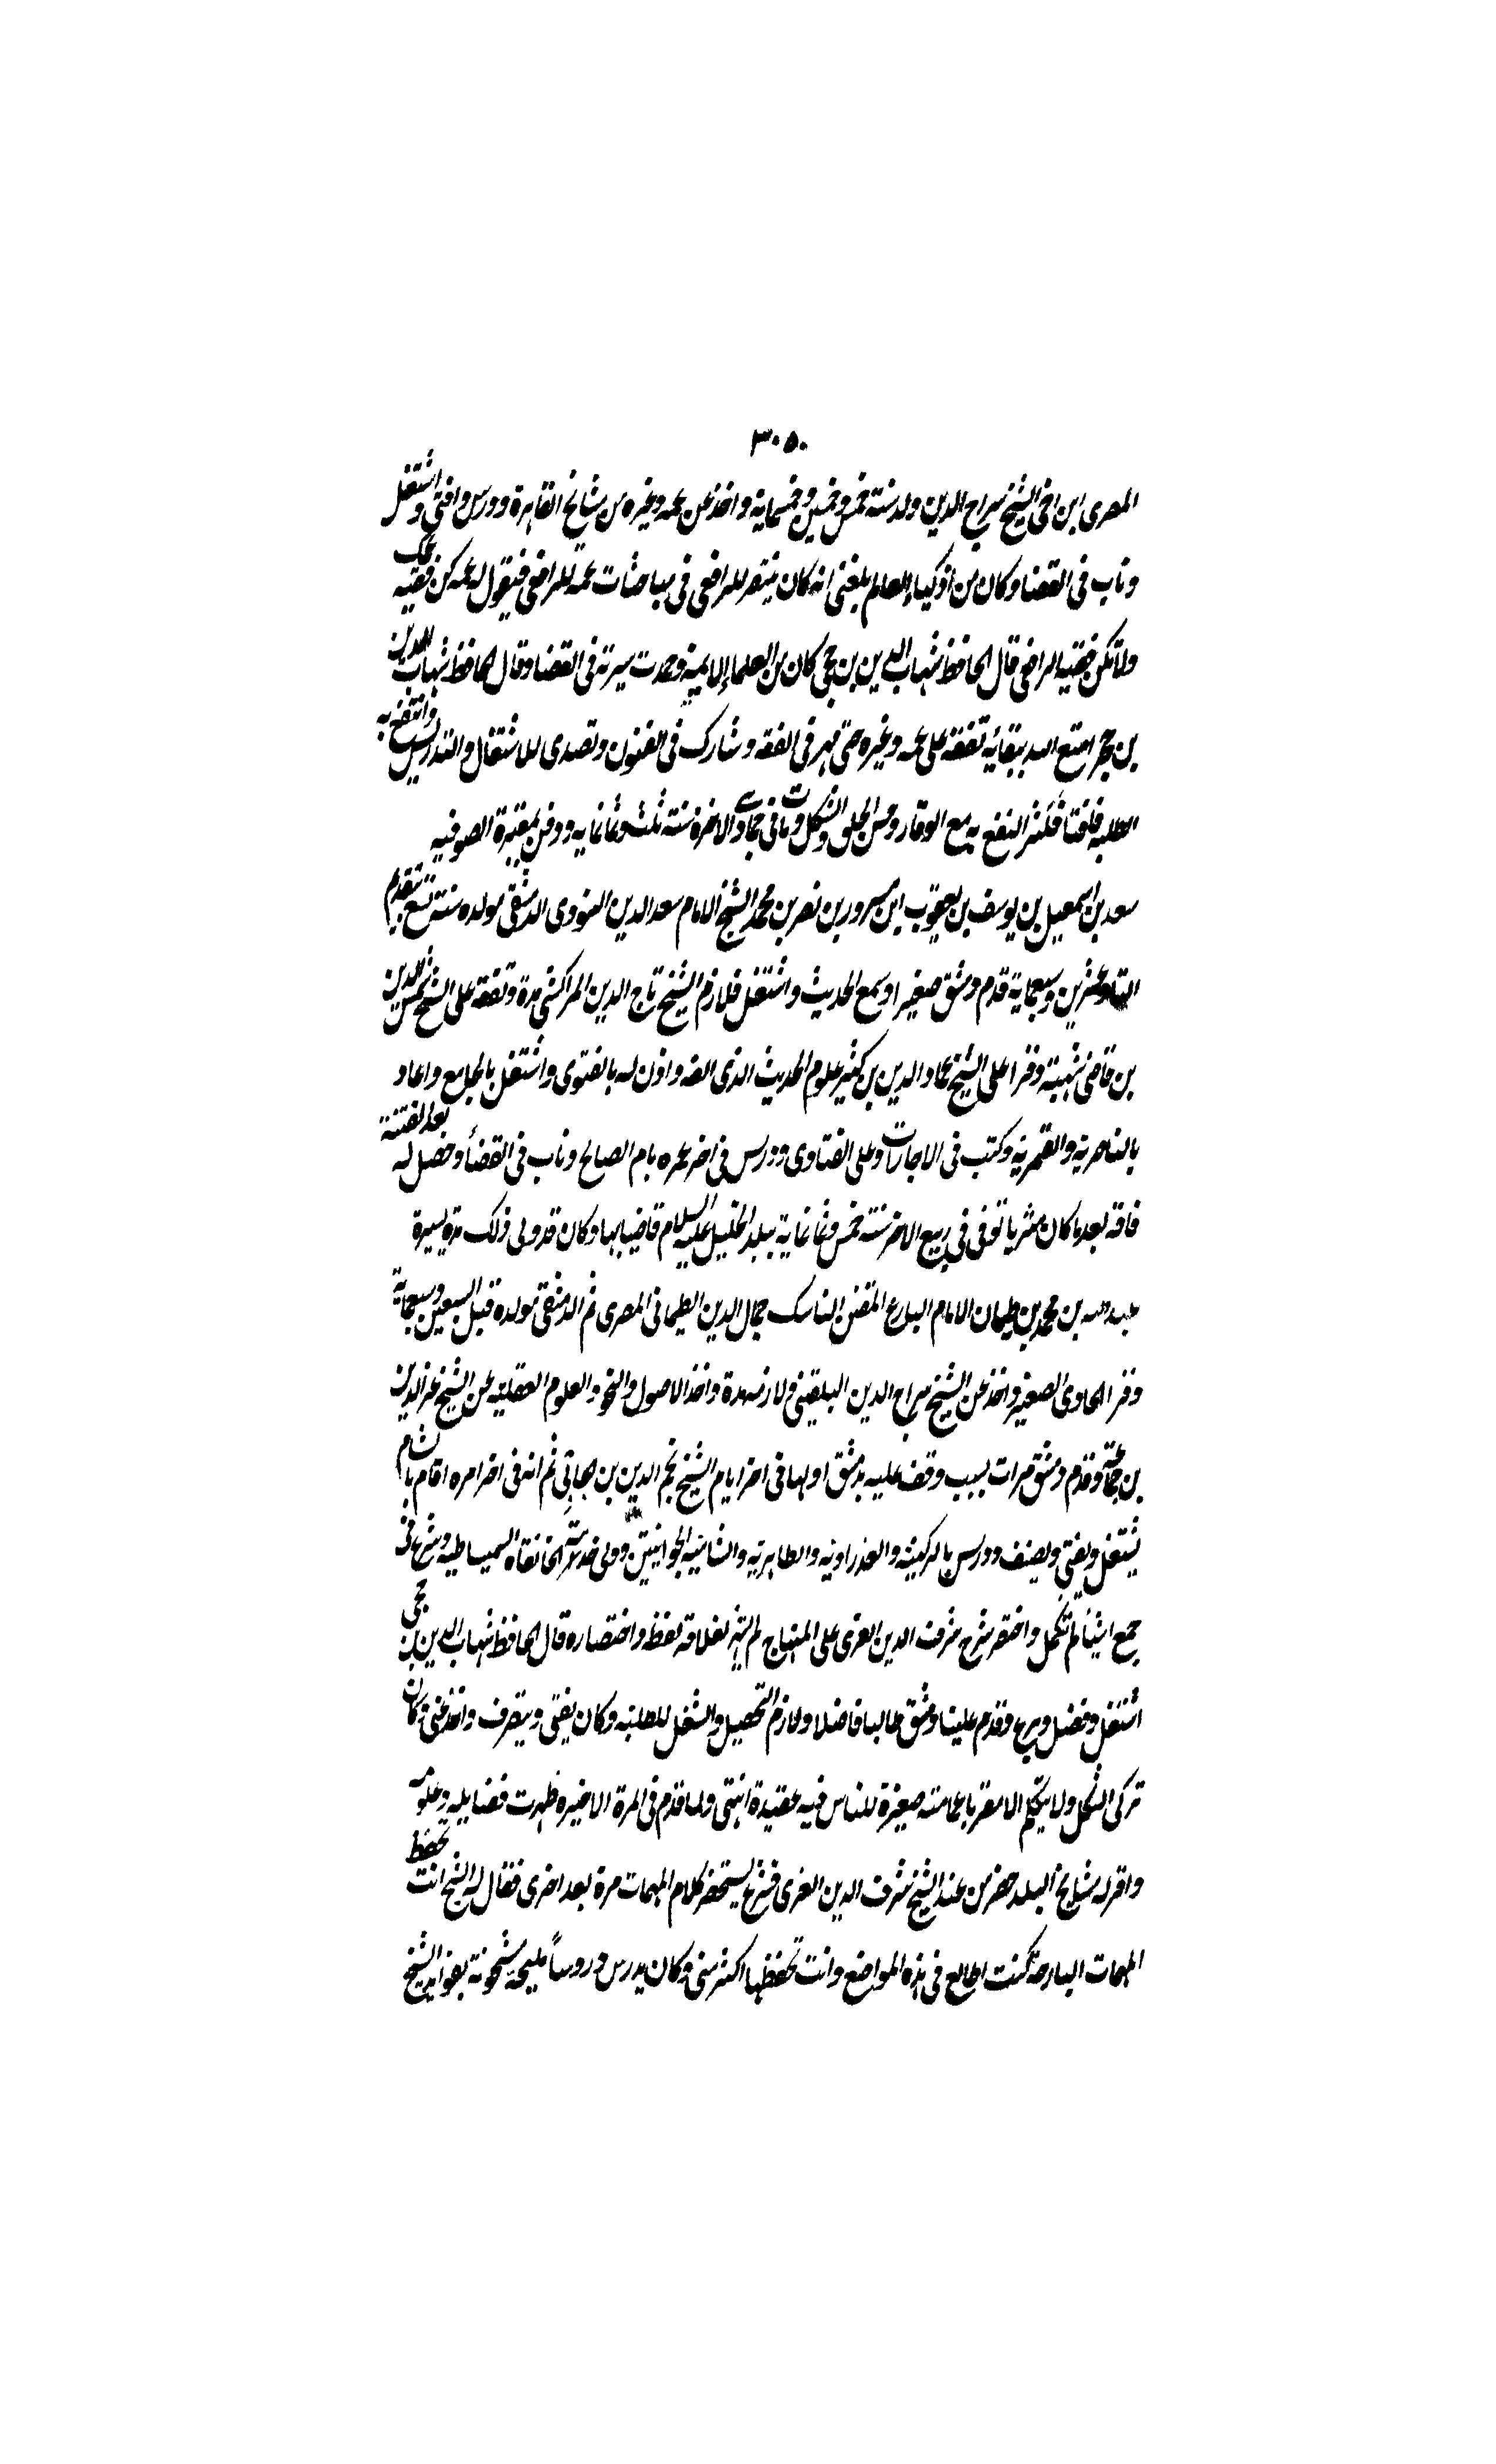 ٣٠٥٠
المصرى ابن اخى الشيخ سراج الدين ولد سنة خمس وخمسين وخمسماية واخذ عن عمه وغيره من مشايخ القاهرة ودرس وافتى واشتغل
وناب فى القضا وكان من اذكياء العلم بلغنى انه كان ينتصر للرافعى فى مباحثات عمه للرافعى فيقول له عمه كن فقيه عمك
ولا تكن فقيه الرافعى قال الحافظ شهاب الدين بن حجى كان من العلماء الايمة وحمدت سيرته فى القضا وقال الحافظ شهاب الدين
بن حجر امتع الله ببقائه تفقه على عمه وغيره حتى مهر فى الفقه وشارك فى الفنون وتصدى للاشتغال والتدريس وانتفع به
الطلبه فلفتا فكثر النفع به مع الوقار وحسن الخلق والشكل ومات فى جمادى الاخرة سنة ثلث وثمانمايه ودفن بمقبرة الصوفيه
سعد بن اسمعيل بن يوسف بن يعقوب ابن سرور بن نصر بن محمد الشيخ الامام سعد الدين النووى الدمشقى مولده سنة تسع بتقديم
التاء وعشرين وسبعماية قدم دمشق صغيرا وسمع الحديث واشتغل فلازم الشيخ تاج الدين المراكشى مدة وتفقه على الشيخ شمس الدين
بن قاضى شهبة وقرا على الشيخ عماد الدين بن كثير علوم الحديث الذى الفه واذن له بالفتوى واشتغل بالجامع واعاد
بالناصرية والقمرية وكتب فى الاجازات وعلى الفتاوى ودرس فى اخر عمره بام الصالح وناب فى القضأ وحصل له بعد الفتنة
فاقه بعد ما كان مثريا توفى فى ربيع الاخر سنة خمس وثمانماية ببلد الخليل عليه السلام قاضيا بها وكان قد ولى ذلك مدة يسيرة
عبد الله بن محمد بن طيمان الامام البارع المفنن الناسك جمال الدين الطيمانى المصرى ثم الدمشقى مولده قبل السبعين وسبعماية
وقرا الحاوى الصغير واخذ عن الشيخ سراج الدين البلقينى ولازمه مدة واخذ الاصول والنحو والعلوم العقليه عن الشيخ عز الدين
بن جماعة وقدم دمشق مرات بسبب وقف عليه بدمشق اولها فى اخر ايام الشيخ نجم الدين بن جابى ثم انه فى اخر امره اقام بالشام
يشتغل ويفتى ويصنف ودرس بالركنية والعذراوية والظاهرية والشامية الجوانيتين وولى خدمة الخانقاه السميساطيه وشرع فى
جمع اشيا لم تكمل واختصر شرح شرف الدين الغزى على المنهاج لم يشتهر لغلاقة لفظه واختصاره قال الحافظ شهاب الدين بن حجى
اشتغل وفضل وبرع وقدم علينا دمشق طالبا فاضلا ولازم التحصيل والشغل للطلبه وكان يفتى ويتصرف واخذ عنى وكان
تركى الشكل ولا يتكلم الا معربا عمامته صغيرة للناس فيه عقيدة انتهى ولما قدم فى المرة الاخيره ظهرت فضايله وعلومه
واقر له مشايخ البلد حضر من عند الشيخ شرف الدين الغزى فشرع يستحضر كلام المهمات مرة بعد اخرى فقال له الشيخ انت تحفظ
المهمات البارحة كنت اطالع فى هذه المواضع وانت تحفظها اكثر منى وكان يدرس دروساً مليحة مشحونة بفوايد الشيخ